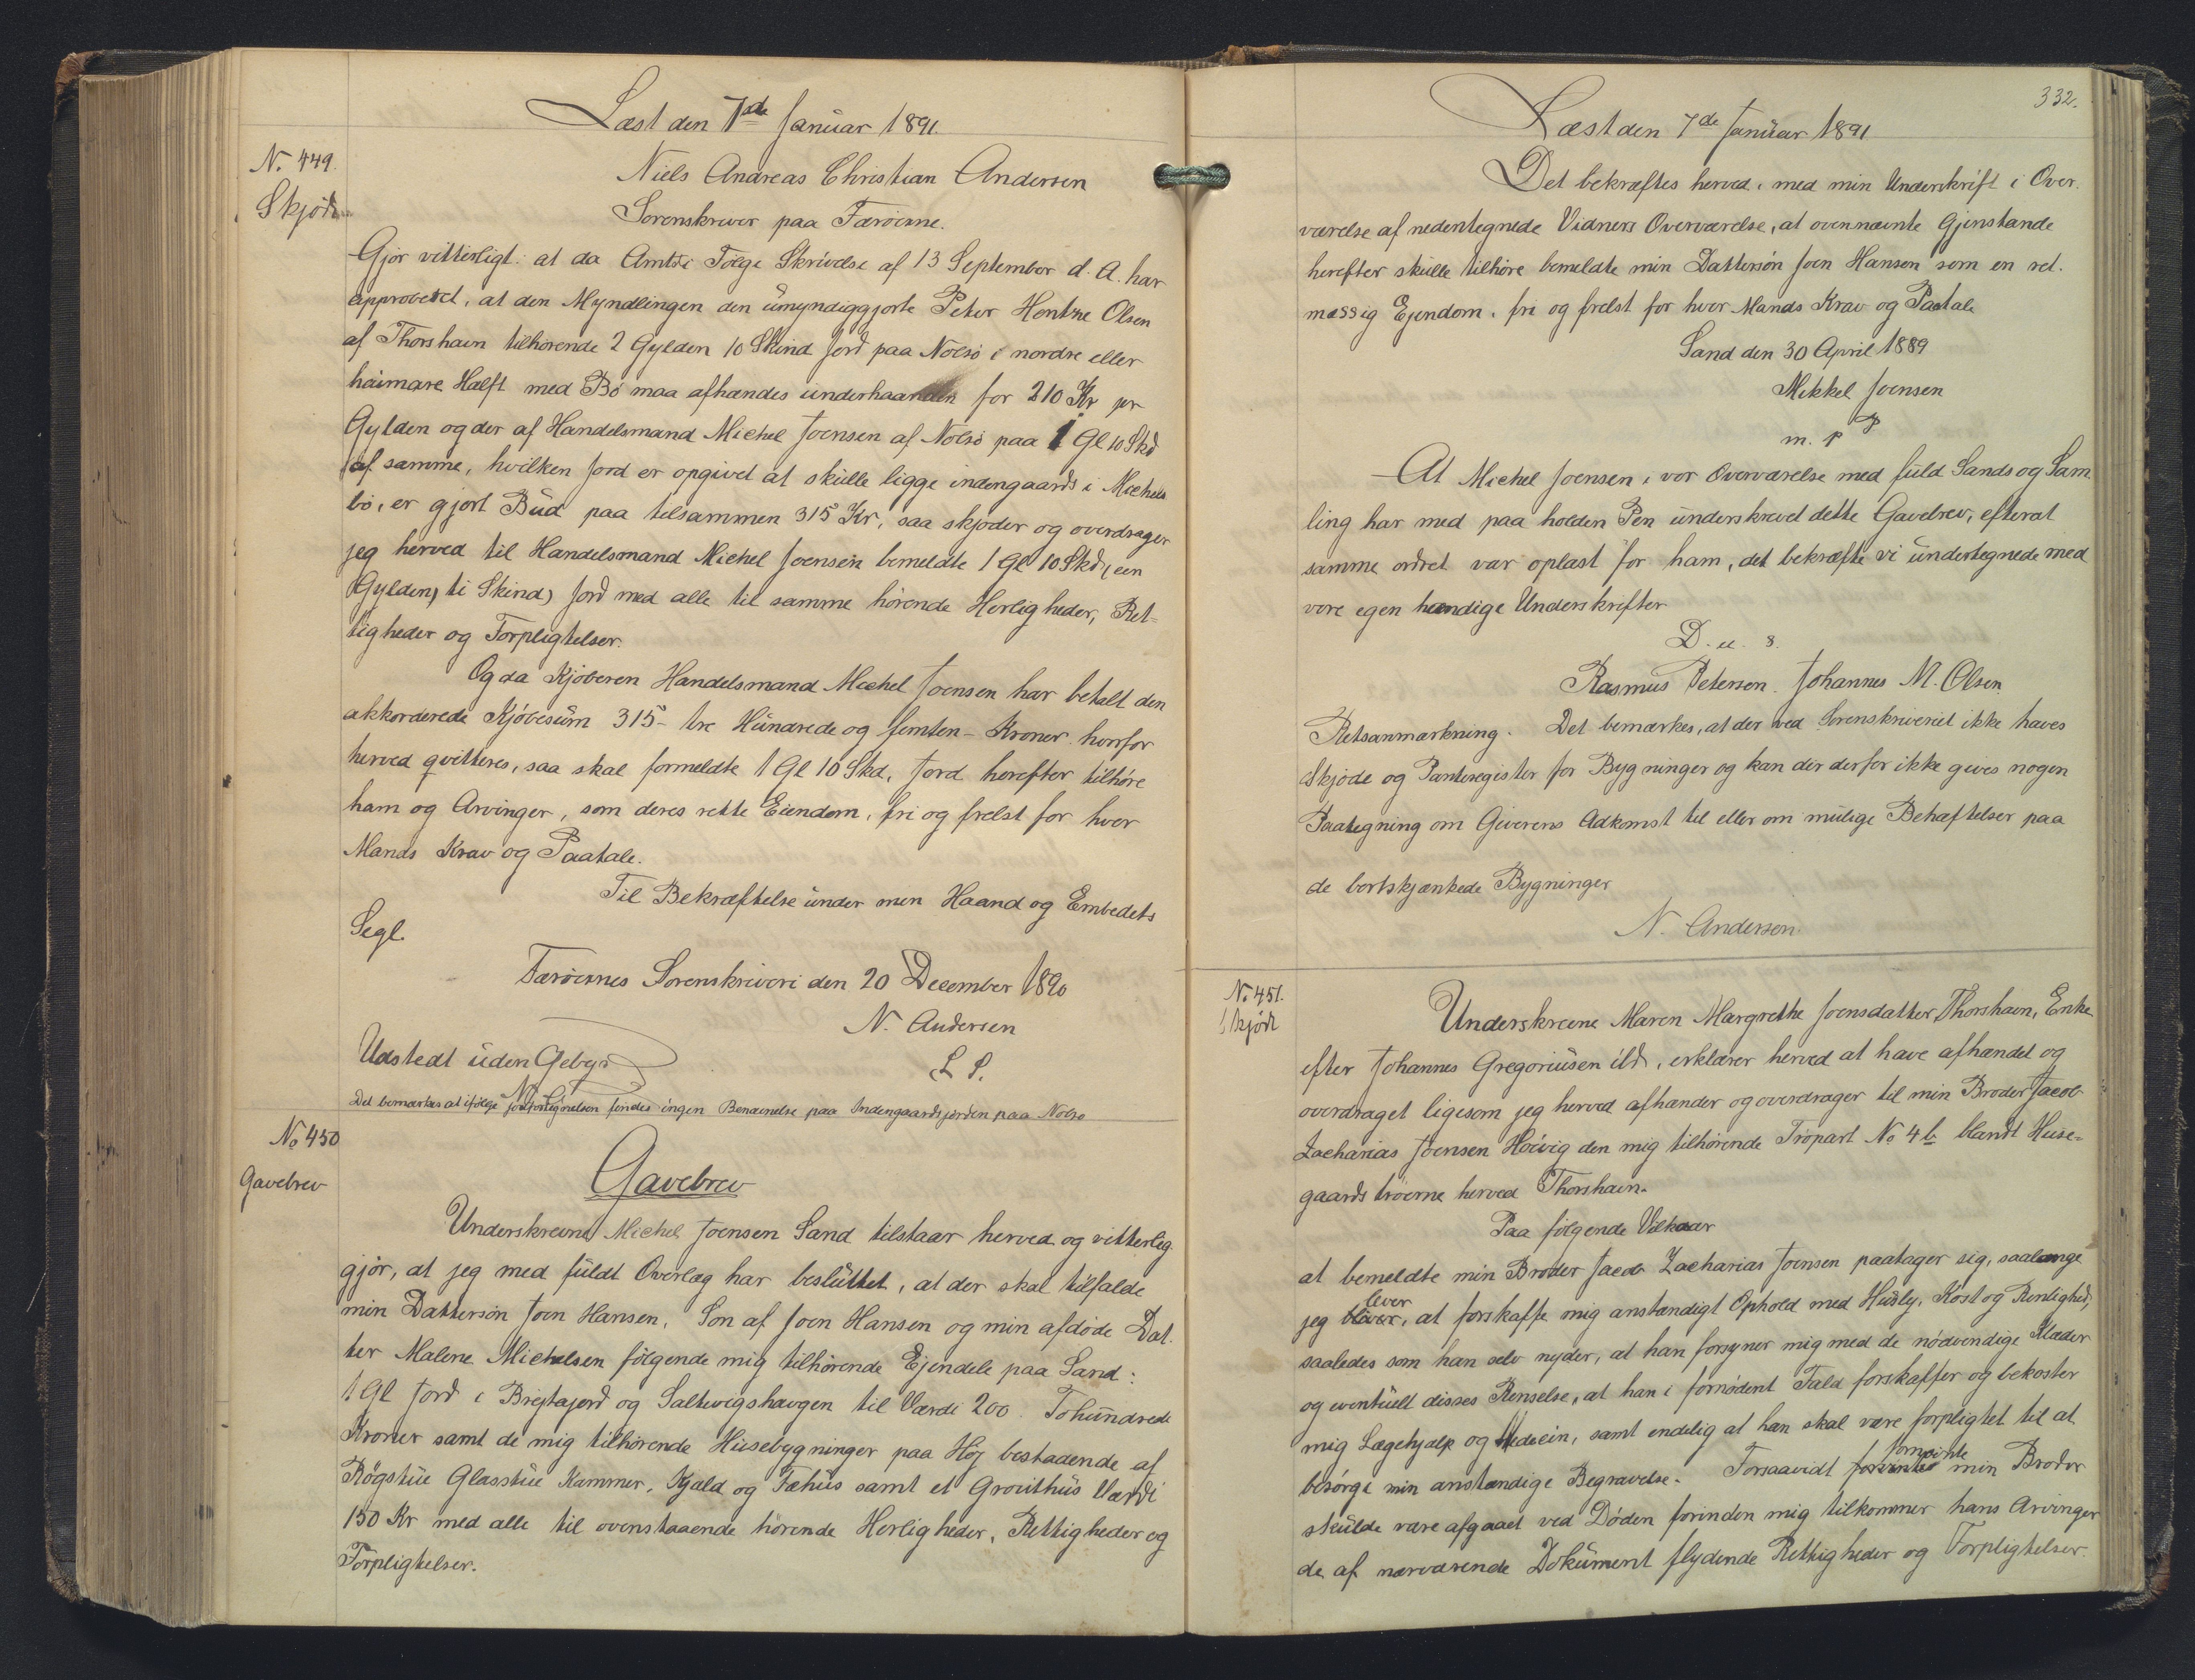 Læst den 7de Januar 1891.
N. 449.
Skjøde
Niels Andreas Christian Andersen
Sorenskriver paa Færøerne.
Gjør vitterligt: at da Amtet i Følge Skrivelse af 13 September d. A. har
approberet, at den Myndlingen den umyndiggjorte Peter Hentze Olsen
af Thorshavn tilhørende 2 Gylden 10 Skind Jord paa Nolsø i nordre eller
haimare Halft med Bø maa afhændes underhaanden for 210 Kr pr
Gylden og der af Handelsmand Michel Joensen af Nolsø paa 1 Gl 10 Skd
af samme, hvilken Jord er opgivet at skulle ligge indengaards i Michels
bø, er gjort Bud paa tilsammen 315 Kr, saa skjøder og overdrager
jeg herved til Handelsmand Michel Joensen bemeldte 1 Gl 10 Skd, (een
Gylden, ti Skind) Jord med alle til samme hørende Herligheder, Ret-
tigheder og Forpligtelser.
Og da Kjøberen Handelsmand Michel Joensen har betalt den
akkorderede Kjøbesum 315 - tre Hundrede og femten - Kroner hvorfor
herved qvitteres, saa skal formeldte 1 Gl 10 Skd. Jord herefter tilhøre
ham og Arvinger, som deres rette Eiendom, fri og frelst for hver
Mands Krav og Paatale.
Til Bekræftelse under min Haand og Embedets
Segl.
Færøernes Sorenskriveri den 20 December 1890
N. Andersen
L S.
Udstedt uden Gebyr
Det bemærkes at ifølge Jordfortegnelsen findes ingen Benævnelse paa Indengaardsjorden paa Nolsø
No 450
Gavebrev
Gavebrev
Underskrevne Michel Joensen Sand tilstaar herved og vitterlig
gjør, at jeg med fuldt Overlæg har besluttet, at der skal tilfalde
min Dattersøn Joen Hansen, Søn af Joen Hansen og min afdøde Dat-
ter Malene Michelsen følgende mig tilhørende Ejendele paa Sand:
1 Gl Jord i Brejtajord og Saltvigshavgen til Værdi 200. Tohundrede
Kroner samt de mig tilhørende Husebygninger paa Høj bestaaende af
Røgstue Glasstue Kammer, Kjald og Fæhus samt et Grouthus Værdi
150 Kr med alle til ovenstaaende hørende Herligheder, Rettigheder og
Forpligtelser.
332.
Læst den 7de Januar 1891
Det bekræftes herved, med min Underskrift i Over-
værelse af nedentegnede Vidners Overværelse, at ovennævnte Gjenstande
herefter skulle tilhøre bemeldte min Dattersøn Joen Hansen som en ret-
mæssig Ejendom, fri og frelst for hver Mands Krav og Paatale
Sand den 30 April 1889
Mikkel Joensen
m. p P
At Michel Joensen i vor Overværelse med fuld Sands og Sam-
ling har med paa holden Pen underskrevet dette Gavebrev, efterat
samme ordret var oplæst for ham, det bekræfte vi undertegnede med
vore egen hændige Underskrifter
D. u. s.
Rasmus Petersen. Johannes M. Olsen
Retsanmærkning. Det bemærkes, at der ved Sorenskriveriet ikke haves
Skjøde og Panteregister for Bygninger og kan der derfor ikke gives nogen
Paategning om Giverens Adkomst til eller om mulige Behæftelser paa
de bortskjænkede Bygninger
N. Andersen.
No 451.
Skjøde
Underskrevne Maren Margrethe Joensdatter, Thorshavn, Enke
efter Johannes Gregoriusen ibd, erklærer herved at have afhændet og
overdraget ligesom jeg herved afhænder og overdrager til min Broder Jacob
Zacharias Joensen Hoivig den mig tilhørende Trøpart No 4 b blandt Huse-
gaards trøerne herved Thorshavn.
Paa følgende Vilkaar
at bemeldte min Broder Jacob Zacharias Joensen paatager sig, saalænge
jeg bliver lever, at forskaffe mig anstændigt Ophold med Husly, Kost og Renlighed,
saaledes som han selv nyder, at han forsyner mig med de nødvendige Klæder
og eventuelt disses Renselse, at han i fornødent Fald forskaffer og bekoster
mig Lægehjælp og Medecin, samt endelig at han skal være forpligtet til at
besørge min anstændige Begravelse. Forsaavidt fornævnte min Broder
skulde være afgaaet ved Døden forinden mig tilkommer hans Arvinger
de af nærværende Dokument flydende Rettigheder og Forpligtelser.